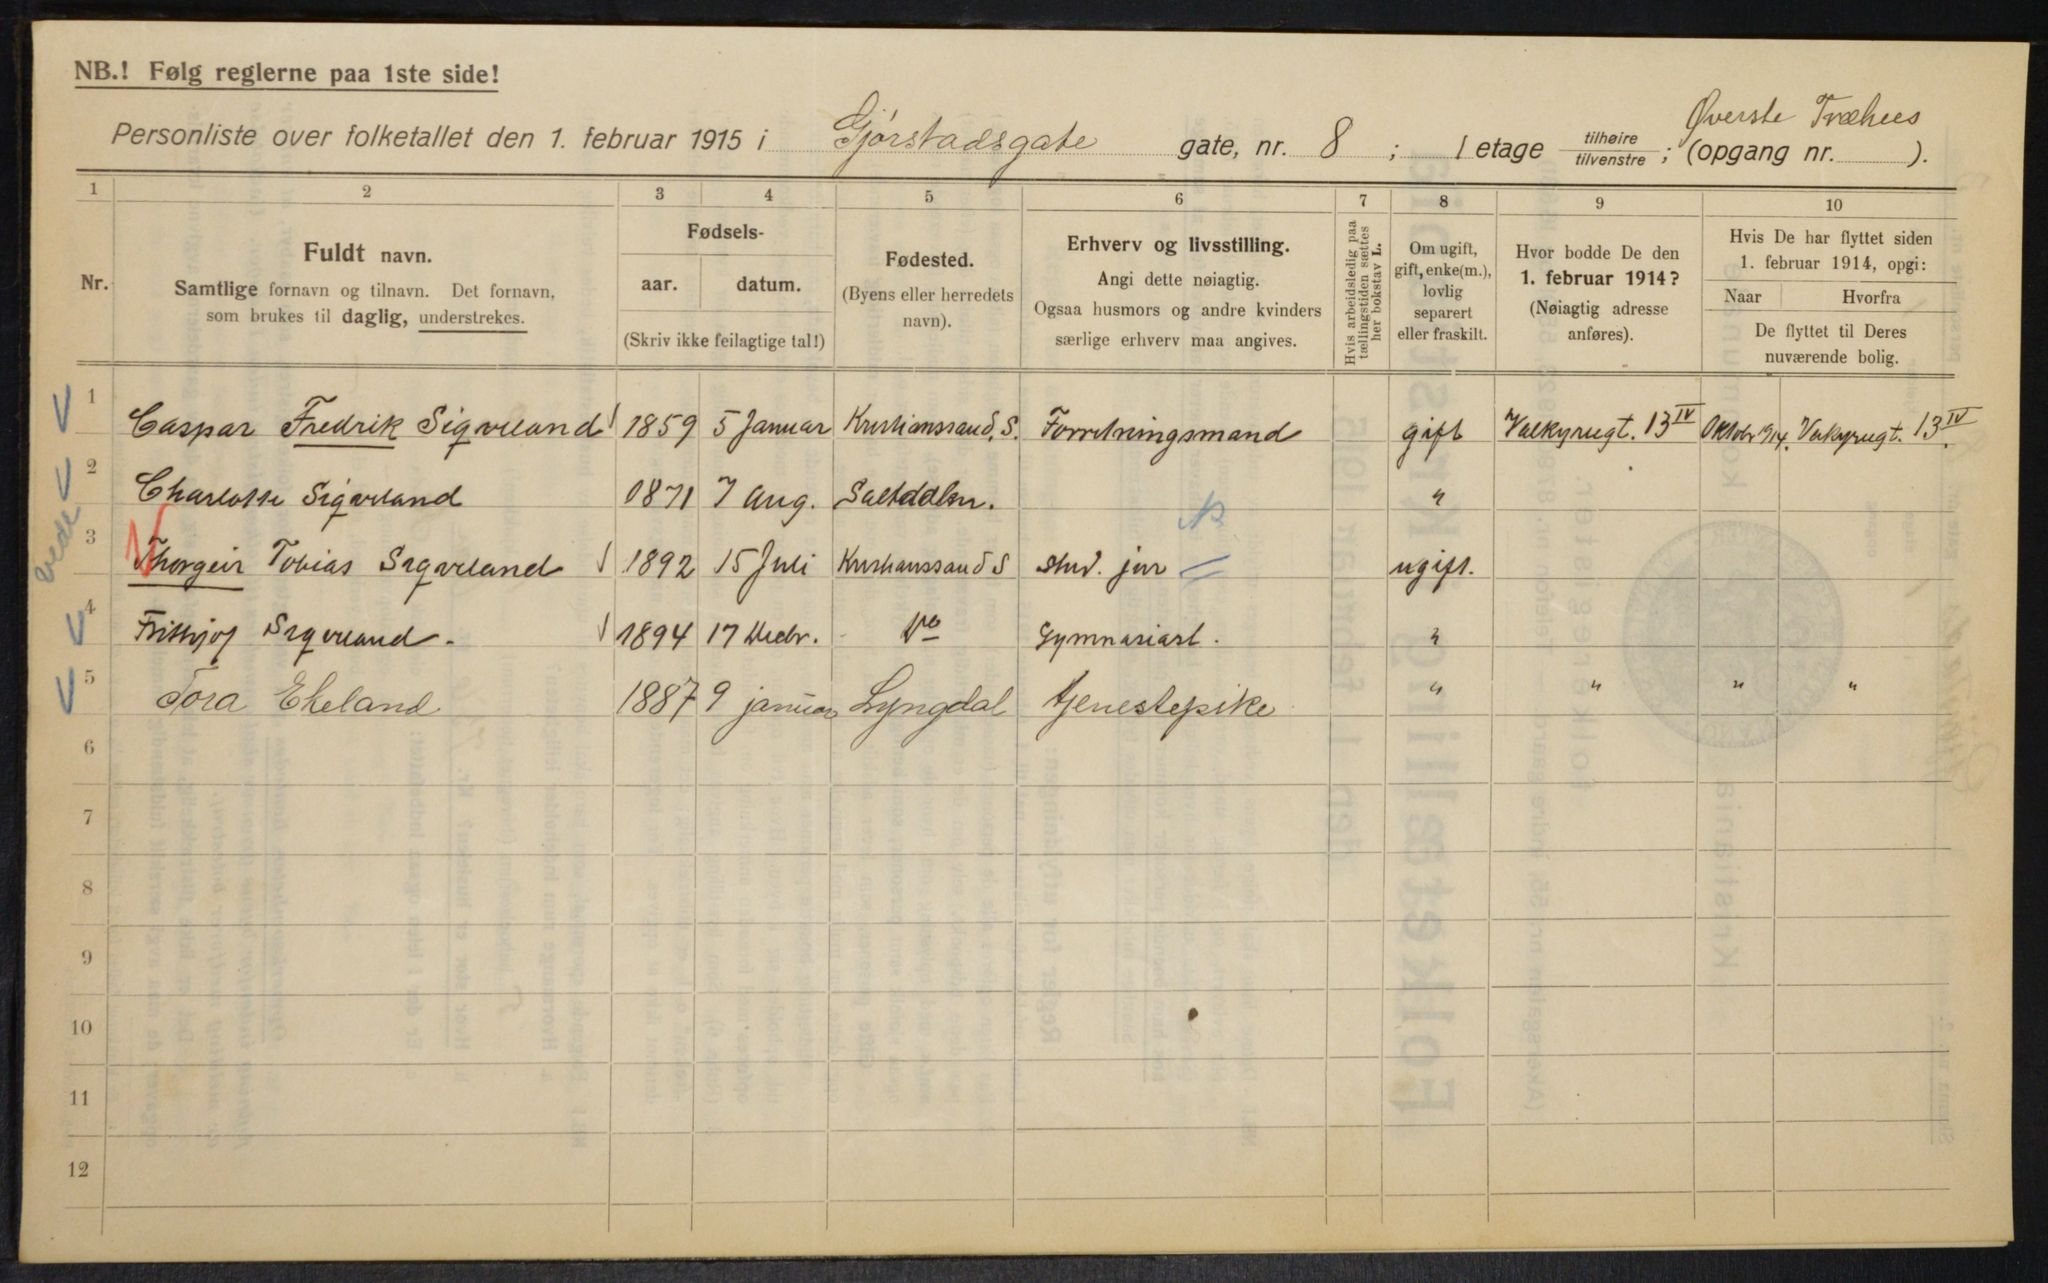 NB.! Følg reglerne paa 1ste side!
Øverste Træhus
Personliste over folketallet den 1. februar 1915 i Gjørstadsgate gate, nr. 8 ; 1 etage tilhøire tilvenstre ; (opgang nr. ).
1 2 3 4 5 6 7 8 9 10
Nr.
Fuldt navn.
Samtlige fornavn og tilnavn. Det fornavn,
som brukes til daglig, understrekes.
Fødsels-
aar. datum.
(Skriv ikke feilagtige tal!)
Fødested.
(Byens eller herredets
navn).
Erhverv og livsstilling.
Angi dette nøiagtig.
Ogsaa husmors og andre kvinders
særlige erhverv maa angives.
Hvis arbeidsledig paa
tællingstiden sættes
her bokstav L.
Om ugift,
gift, enke(m.),
lovlig
separert
eller fraskilt.
Hvor bodde De den
1. februar 1914?
(Nøiagtig adresse
anføres).
Hvis De har flyttet siden
1. februar 1914, opgi:
Naar Hvorfra
De flyttet til Deres
nuværende bolig.
1 Caspar Fredrik Sigveland 1859 5 Januar Kristianssand, S. Forretningsmand gift Valkyrugt. 13 IV Oktobr 1914. Valkyrugt. 13 IV.
2 Charlotte Sigveland 1871 7 Aug. Saltdalen. "
3 Thorgeir Tobias Sigveland 1892 15 Juli Kristianssand S stud. jur ugift.
4 Frithjof Sigveland. 1894 17 Decbr. Do Gymnasiast. "
5 Tora Ekeland 1887 9 januar Lyngdal tjenestepike " " " "
6
7
8
9
10
11
12